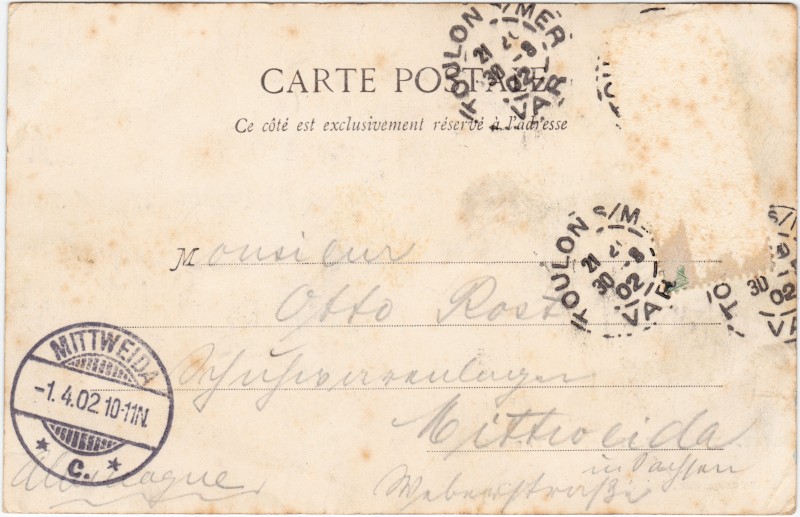 TOULON S/MER
21 30
2 8
02
VAR
CARTE POSTALE
Ce côté est exclusivement réservé à l'adresse
TOULON S/MER
21 30
2 8
02
VAR
S/M
TO
30
8
02
VA
Monsieur
Otto Rost
Schuhwarenlager
Mittweida
in Sachsen
Weberstraße
Allemagne
MITTWEIDA
-1.4.02.10-11N.
* c. *